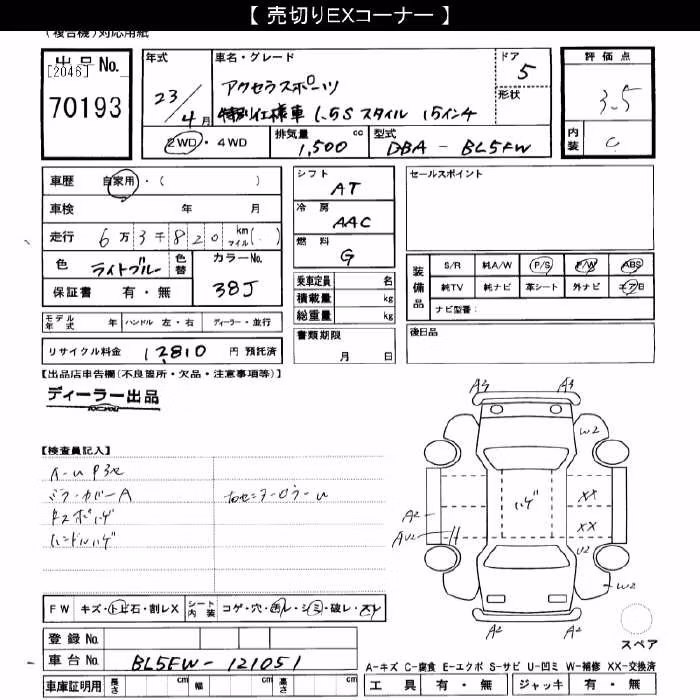 【 売切りEXコーナー 】
(複合機)対応用紙
出品 No.
[2046]
70193
年式
23/4月
車名・グレード
アクセラスポーツ
特別仕様車 1.5S スタイル 15インチ
ドア
5
形状
評価点
3.5
内装
C
2WD・4WD
排気量
1,500 cc
型式
DBA - BL5FW
車歴 自家用・( )
車検 年 月
走行 6万3千820 km マイル( )
色 ライトブルー 色替
カラーNo.
38J
保証書 有・無
シフト
AT
冷房
AAC
燃料
G
乗車定員 名
積載量 kg
総重量 kg
書類期限
月 日
セールスポイント
装備品
S/R 純A/W P/S P/W ABS
純TV 純ナビ 革シート 外ナビ エアB
ナビ型番:
後日品
モデル年式 年 ハンドル 左・右 ディーラー・並行
リサイクル料金 12810 円 預託済
【出品店車告欄(不良箇所・欠品・注意事項等)】
ディーラー出品
【検査員記入】
ミラーカバーA
ハンドルハゲ
A3 A3
W2
ハゲ
XX
A2
XX
AU2
U2
W2
A2 A2
スペア
FW キズ・トビ石・割レX シート内装 コゲ・穴・色レ・シミ・破レ・スレ
登録 No.
車台 No. BL5FW-121051
車庫証明用 長さ cm 幅 cm 高さ cm
A-キズ C-腐食 E-エクボ S-サビ U-凹ミ W-補修 XX-交換済
工具 有・無 ジャッキ 有・無